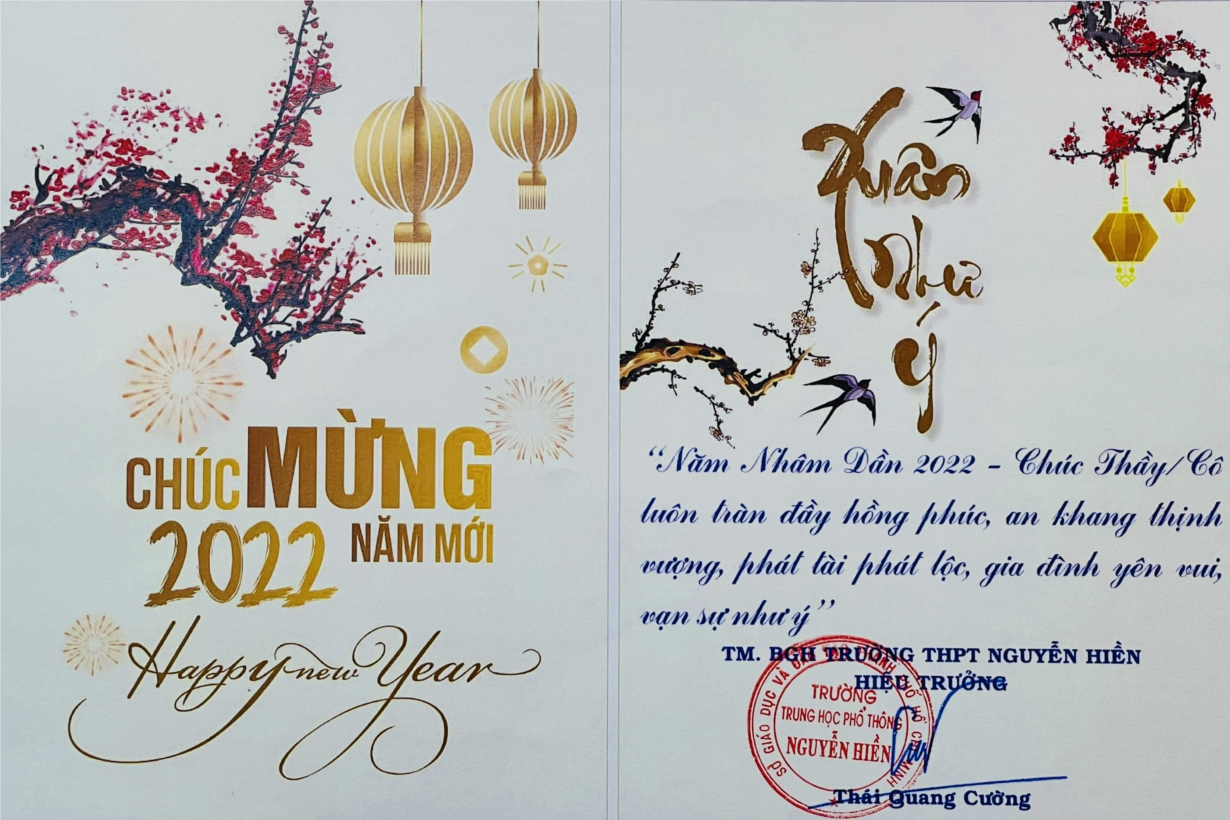 CHÚC MỪNG
2022 NĂM MỚI
Happy new Year
Xuân
như
ý
“Năm Nhâm Dần 2022 – Chúc Thầy/Cô
luôn tràn đầy hồng phúc, an khang thịnh
vượng, phát tài phát lộc, gia đình yên vui,
vạn sự như ý”
TM. BGH TRƯỜNG THPT NGUYỄN HIỀN
HIỆU TRƯỞNG
SỞ GIÁO DỤC VÀ ĐÀO TẠO THÀNH PHỐ HỒ CHÍ MINH
TRƯỜNG
TRUNG HỌC PHỔ THÔNG
NGUYỄN HIỀN
Thái Quang Cường